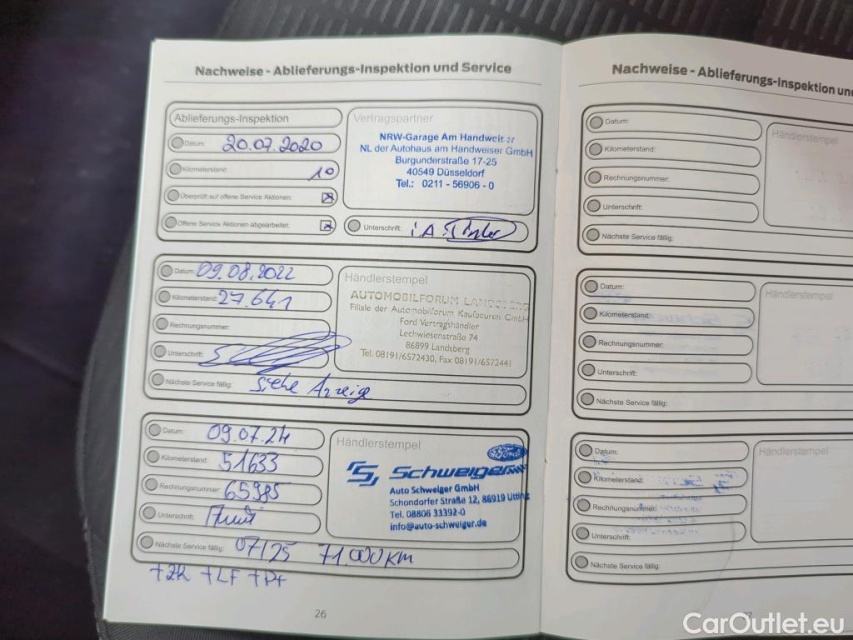 Nachweise - Ablieferungs-Inspektion und Service
Ablieferungs-Inspektion
Datum: 20.07.2020
Kilometerstand: 10
Überprüft auf offene Service Aktionen:
Offene Service Aktionen abgearbeitet:
Vertragspartner
NRW-Garage Am Handweiser
NL der Autohaus am Handweiser GmbH
Burgunderstraße 17-25
40549 Düsseldorf
Tel.: 0211 - 56906 - 0
Unterschrift: i.A.
Datum: 09.08.2022
Kilometerstand: 27.641
Rechnungsnummer:
Unterschrift:
Nächste Service fällig: siehe Anzeige
Händlerstempel
AUTOMOBILFORUM LANDSBERG
Filiale der Automobilforum Kaufbeuren GmbH
Ford Vertragshändler
Lechwiesenstraße 74
86899 Landsberg
Tel. 08191/6572430, Fax 08191/6572441
Datum: 09.07.24
Kilometerstand: 51633
Rechnungsnummer: 65985
Unterschrift:
Nächste Service fällig: 07/25 71.000 KM
Händlerstempel
Ford
Schweiger
Auto Schweiger GmbH
Schondorfer Straße 12, 86919 Utting
Tel. 08806 33392-0
info@auto-schweiger.de
+2K +LF +PF
26
Nachweise - Ablieferungs-Inspektion un
Datum:
Kilometerstand:
Rechnungsnummer:
Unterschrift:
Nächste Service fällig:
Händlerstempel
Datum:
Kilometerstand:
Rechnungsnummer:
Unterschrift:
Nächste Service fällig:
Händlerstempel
Datum:
Kilometerstand:
Rechnungsnummer:
Unterschrift:
Nächste Service fällig:
Händlerstempel
27
CarOutlet.eu